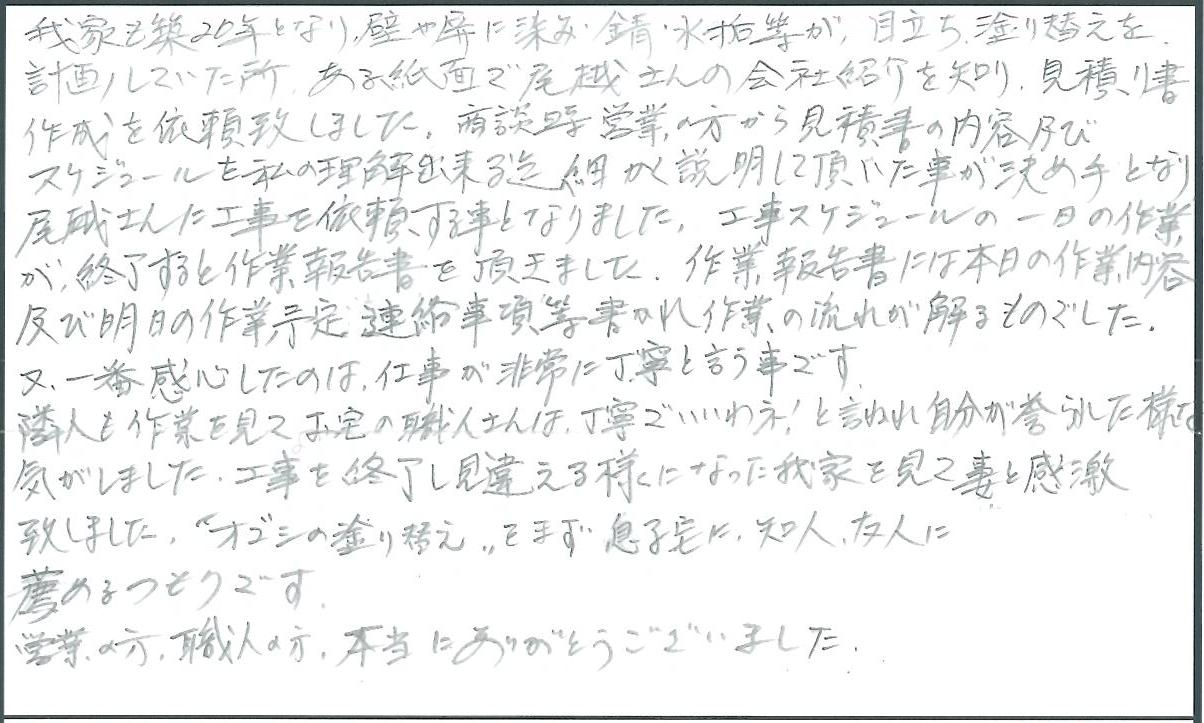 我家も築20年となり、壁や屏に染み・錆・水垢等が、目立ち、塗り替えを
計画していた所、ある紙面で尾越さんの会社紹介を知り、見積り書
作成を依頼致しました。商談時営業の方から見積書の内容及び
スケジュールを私の理解出来る迄、細かく説明して頂いた事が決め手となり
尾越さんに工事を依頼する事となりました。工事スケジュールの一日の作業
が、終了すると作業報告書を頂きました。作業報告書には本日の作業内容
及び明日の作業予定、連絡事項等書かれ作業の流れが解るものでした。
又、一番感心したのは、仕事が非常に丁寧と言う事です。
隣人も作業を見てお宅の職人さんは、丁寧でいいわネ!と言われ自分が誉られた様な
気がしました。工事を終了し見違える様になった我家を見て妻と感激
致しました。"オゴシの塗り替え"をまず息子宅に、知人、友人に
薦めるつもりです。
営業の方、職人の方、本当にありがとうございました。